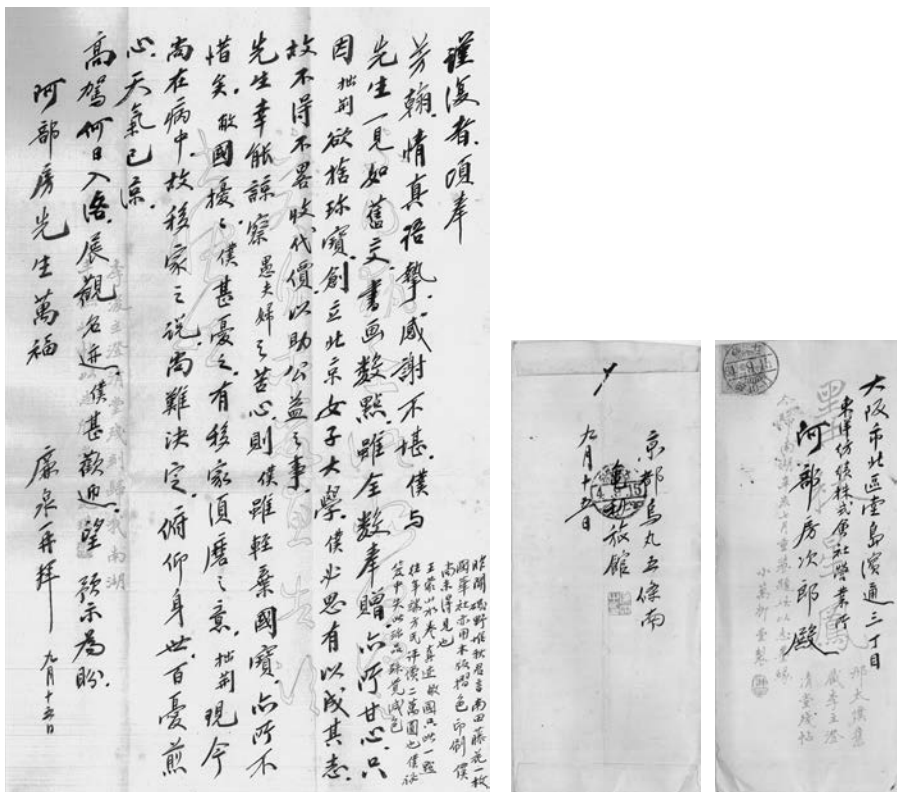 謹復者。頃奉
芳翰。情真語摯。感謝不堪。僕与
先生一見如舊交。書画数點。雖全数奉贈。亦所甘心。只
因拙荆欲捨珍寶。創立北京女子大學。僕必思有以成其志。
故不得不畧收代價。以助公益之事。
先生幸能諒察愚夫婦之苦心。則僕雖輕棄國寶。亦所不
惜矣。敝國擾々。僕甚憂之。有移家須磨之意。拙荆現今
尚在病中。故移家之説。尚難決定。俯仰身世。百憂煎
心。天氣已涼。
高駕何日入洛。展觀名迹。僕甚歡迎。望預示為盼。
阿部房先生萬福
廉泉再拜 九月十五日
昨聞磯野惟秋君言南田藤花一枚
國華社亦用木版摺色印刷僕
尚未得見也
王蒙山水卷真迹敝國只此一點
往年端方氏评價二萬圓也僕
京都烏丸五條南
旅館
九月十五日
大阪市北區堂島濱通三丁目
東洋紡績株式會社營業所
阿部房次郎殿
小萬柳堂製